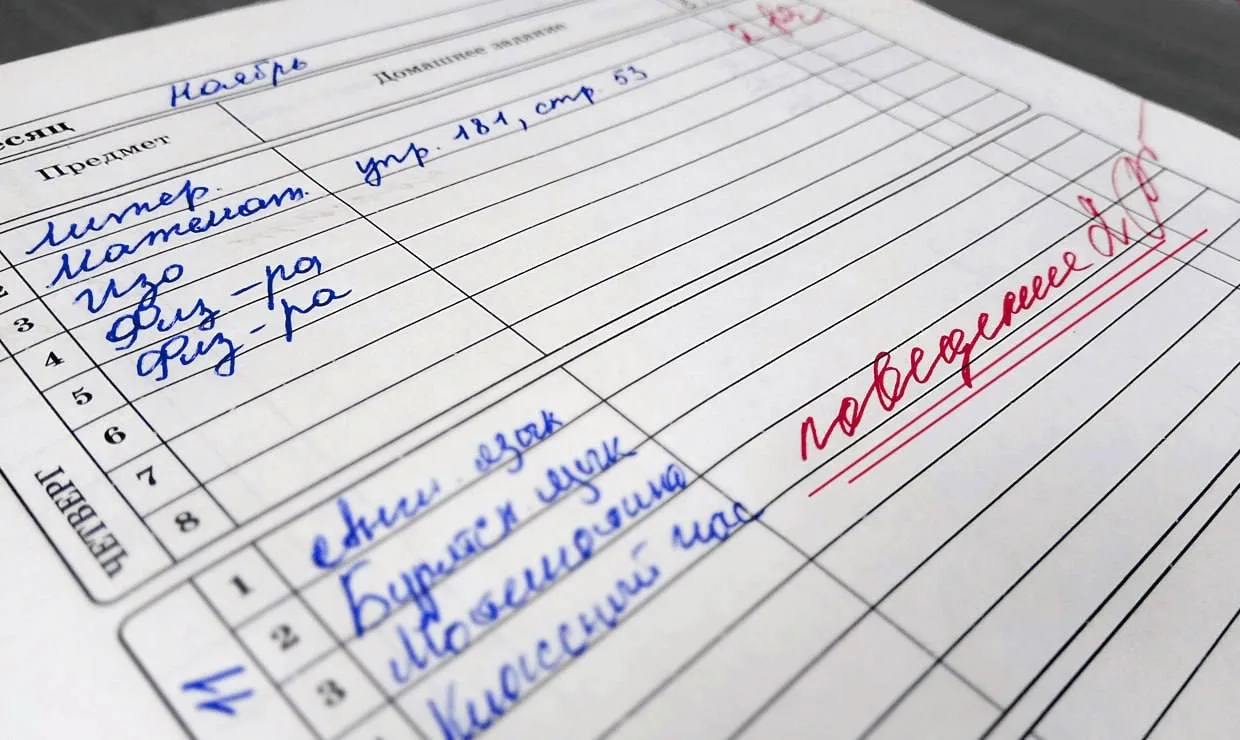 есяц Ноябрь
Предмет Домашнее задание
Литер.
2 Математ. упр. 181, стр. 53
3 Изо
4 Физ-ра
5 Физ-ра
6
7
8
ЧЕТВЕРГ
поведение
1 Англ. язык
2 Бурятск язык
3 Математика
Классный час
11